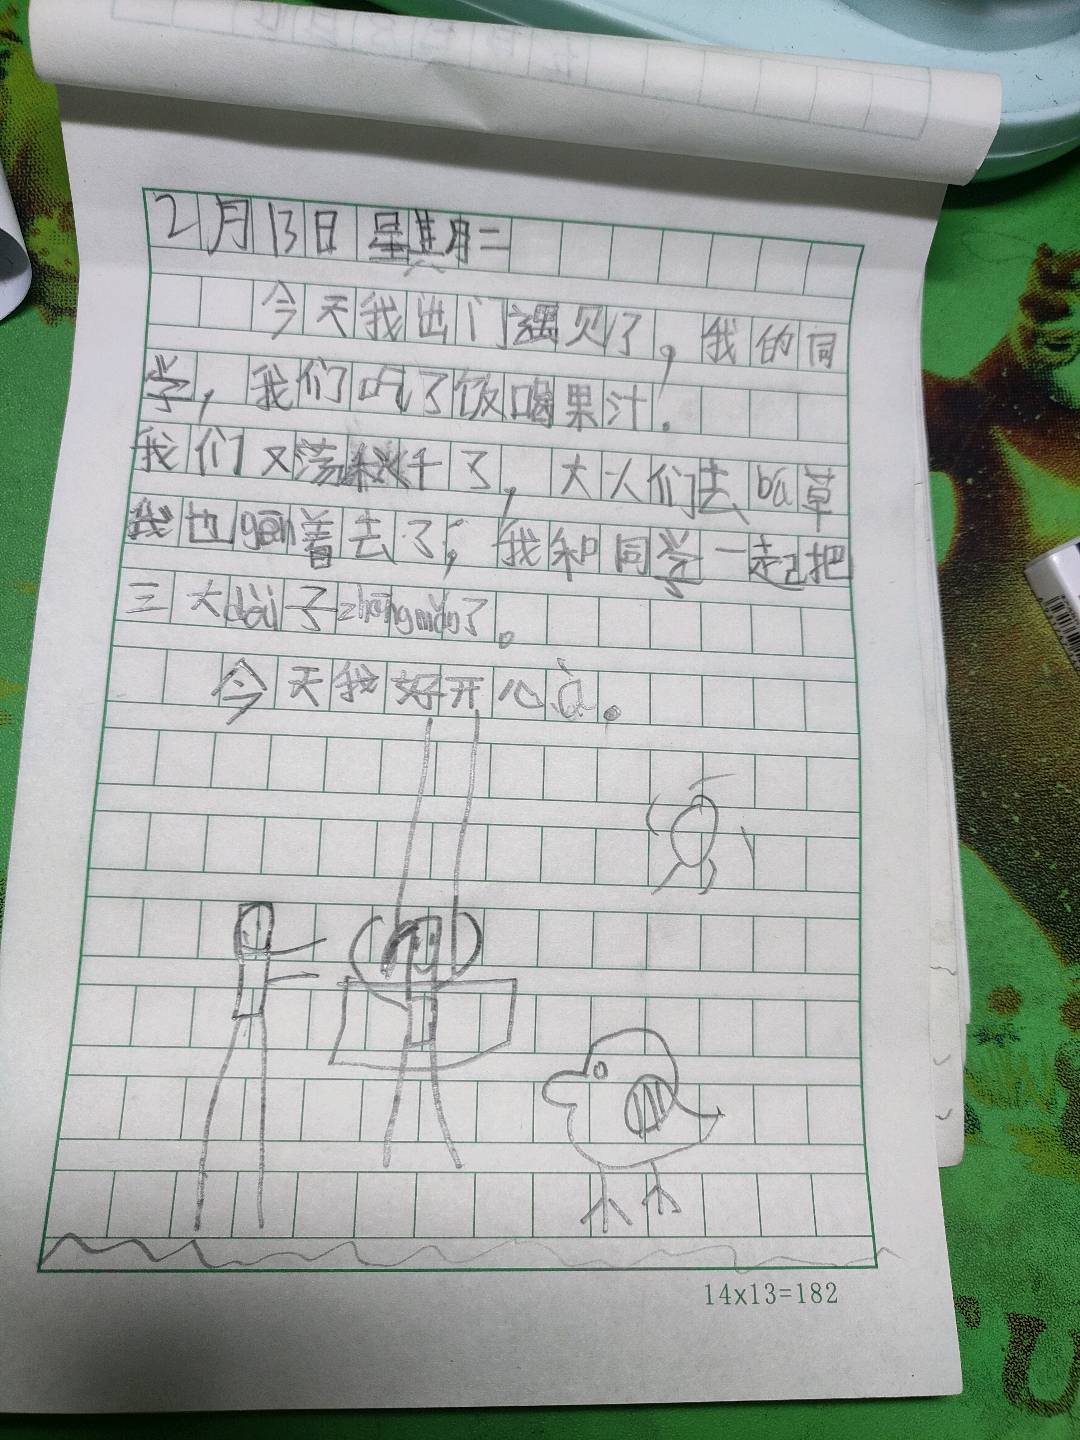 2月13日 星期二
今天我出门遇见了，我的同
学，我们吃了饭喝果汁.
我们又荡秋千了，大人们去bá草
我也gēn着去了，我和同学一起把
三大dài子zhāngmǎn了。
今天我好开心à。
14x13=182